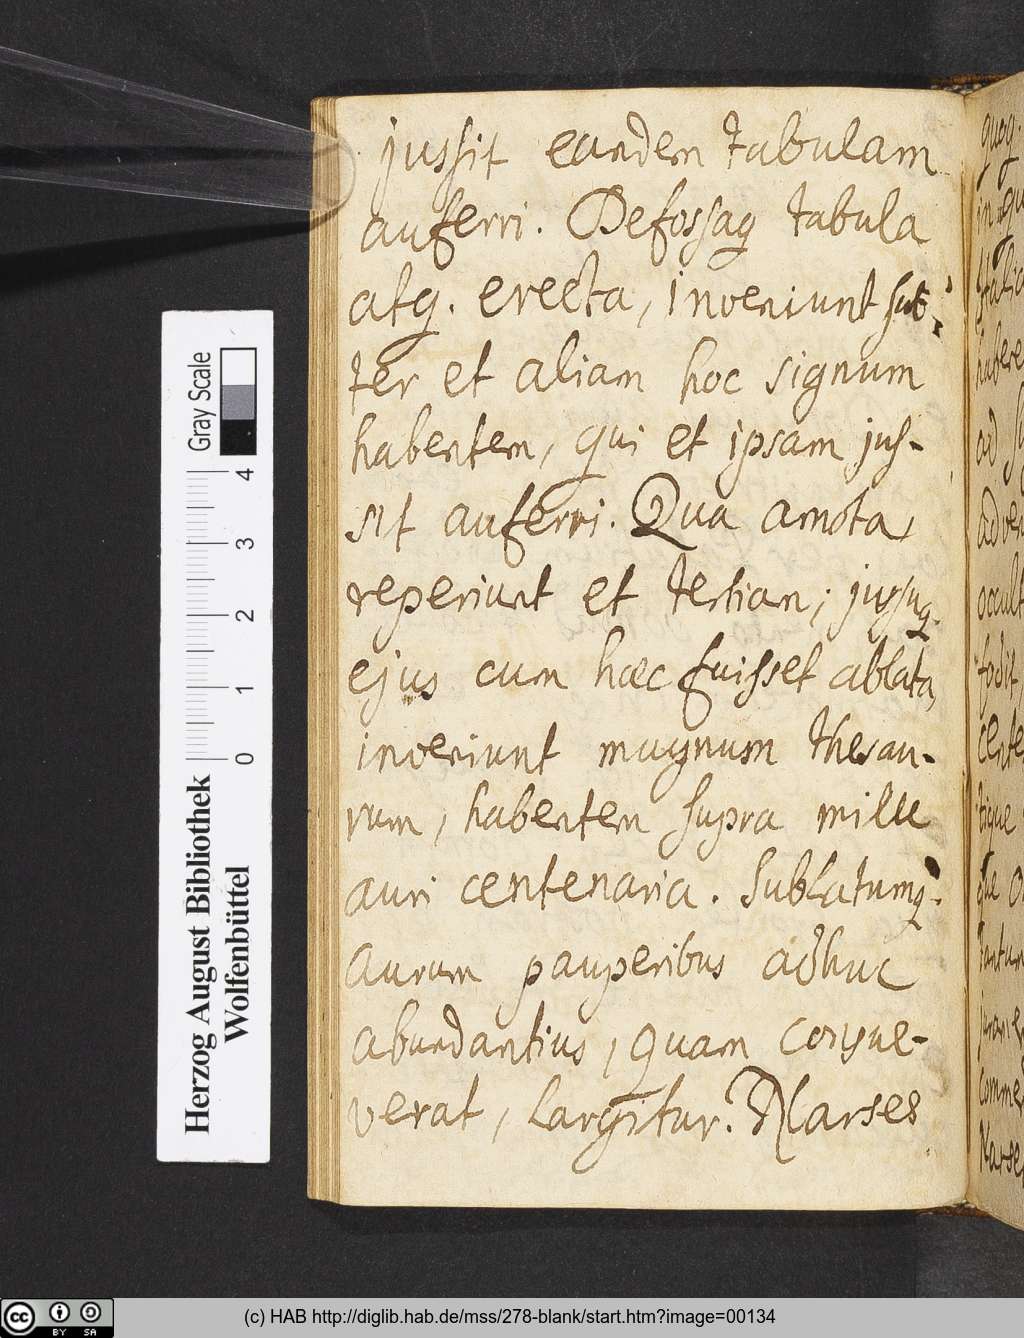 jussit eandem tabulam
auferri. Defossaq tabula
atq. erecta, inveniunt sub-
ter et aliam hoc signum
habentem, qui et ipsam jus-
sit auferri. Qua amota,
reperiunt et tertiam; jussuq.
ejus cum hæc fuisset ablata,
inveniunt magnum thesau-
rum, habentem supra mille
auri centenaria. Sublatumq.
aurum pauperibus adhuc
abundantius, quam consue-
verat, largitur. Narses
Herzog August Bibliothek
Wolfenbüttel
0 1 2 3 4
Gray Scale
(c) HAB http://diglib.hab.de/mss/278-blank/start.htm?image=00134
cc BY SA